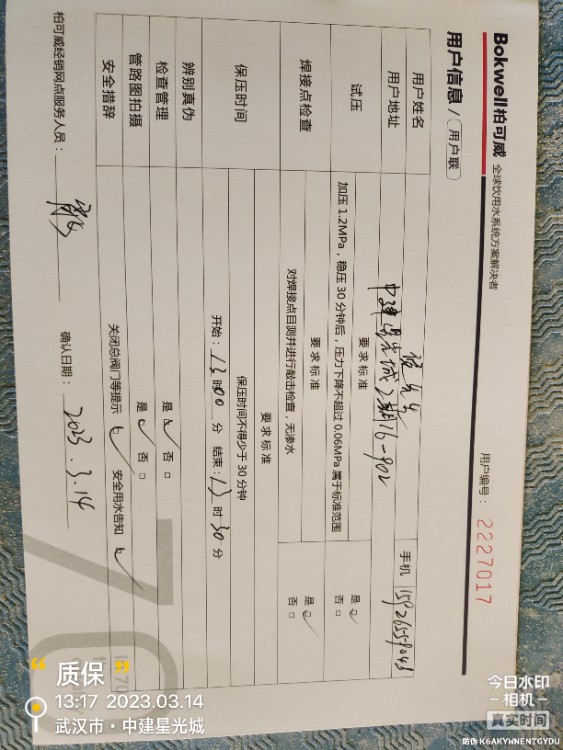 Bokwell柏可威 全球饮用水系统方案解决者
用户信息/(用户联)
用户编号：2227017
用户姓名
手机 15926559045
用户地址 中建星光城2期16-902
试压 要求标准
加压1.2MPa，稳压30分钟后，压力下降不超过0.06MPa属于标准范围 是☑ 否□
焊接点检查 要求标准
对焊接点目测并进行敲击检查，无渗水 是☑ 否□
保压时间 要求标准
保压时间不得少于30分钟
开始：13时00分 结束：13时30分
辨别真伪
检查管理 是☑ 否□
管路图拍摄 是☑ 否□
安全措辞 关闭总阀门等提示☑ 安全用水告知☑
柏可威经销网点服务人员：
确认日期：2023.3.14
“质保”
13:17 2023.03.14
武汉市·中建星光城
今日水印
-相机-
真实时间
防伪 K6AKYWNENTGYDU